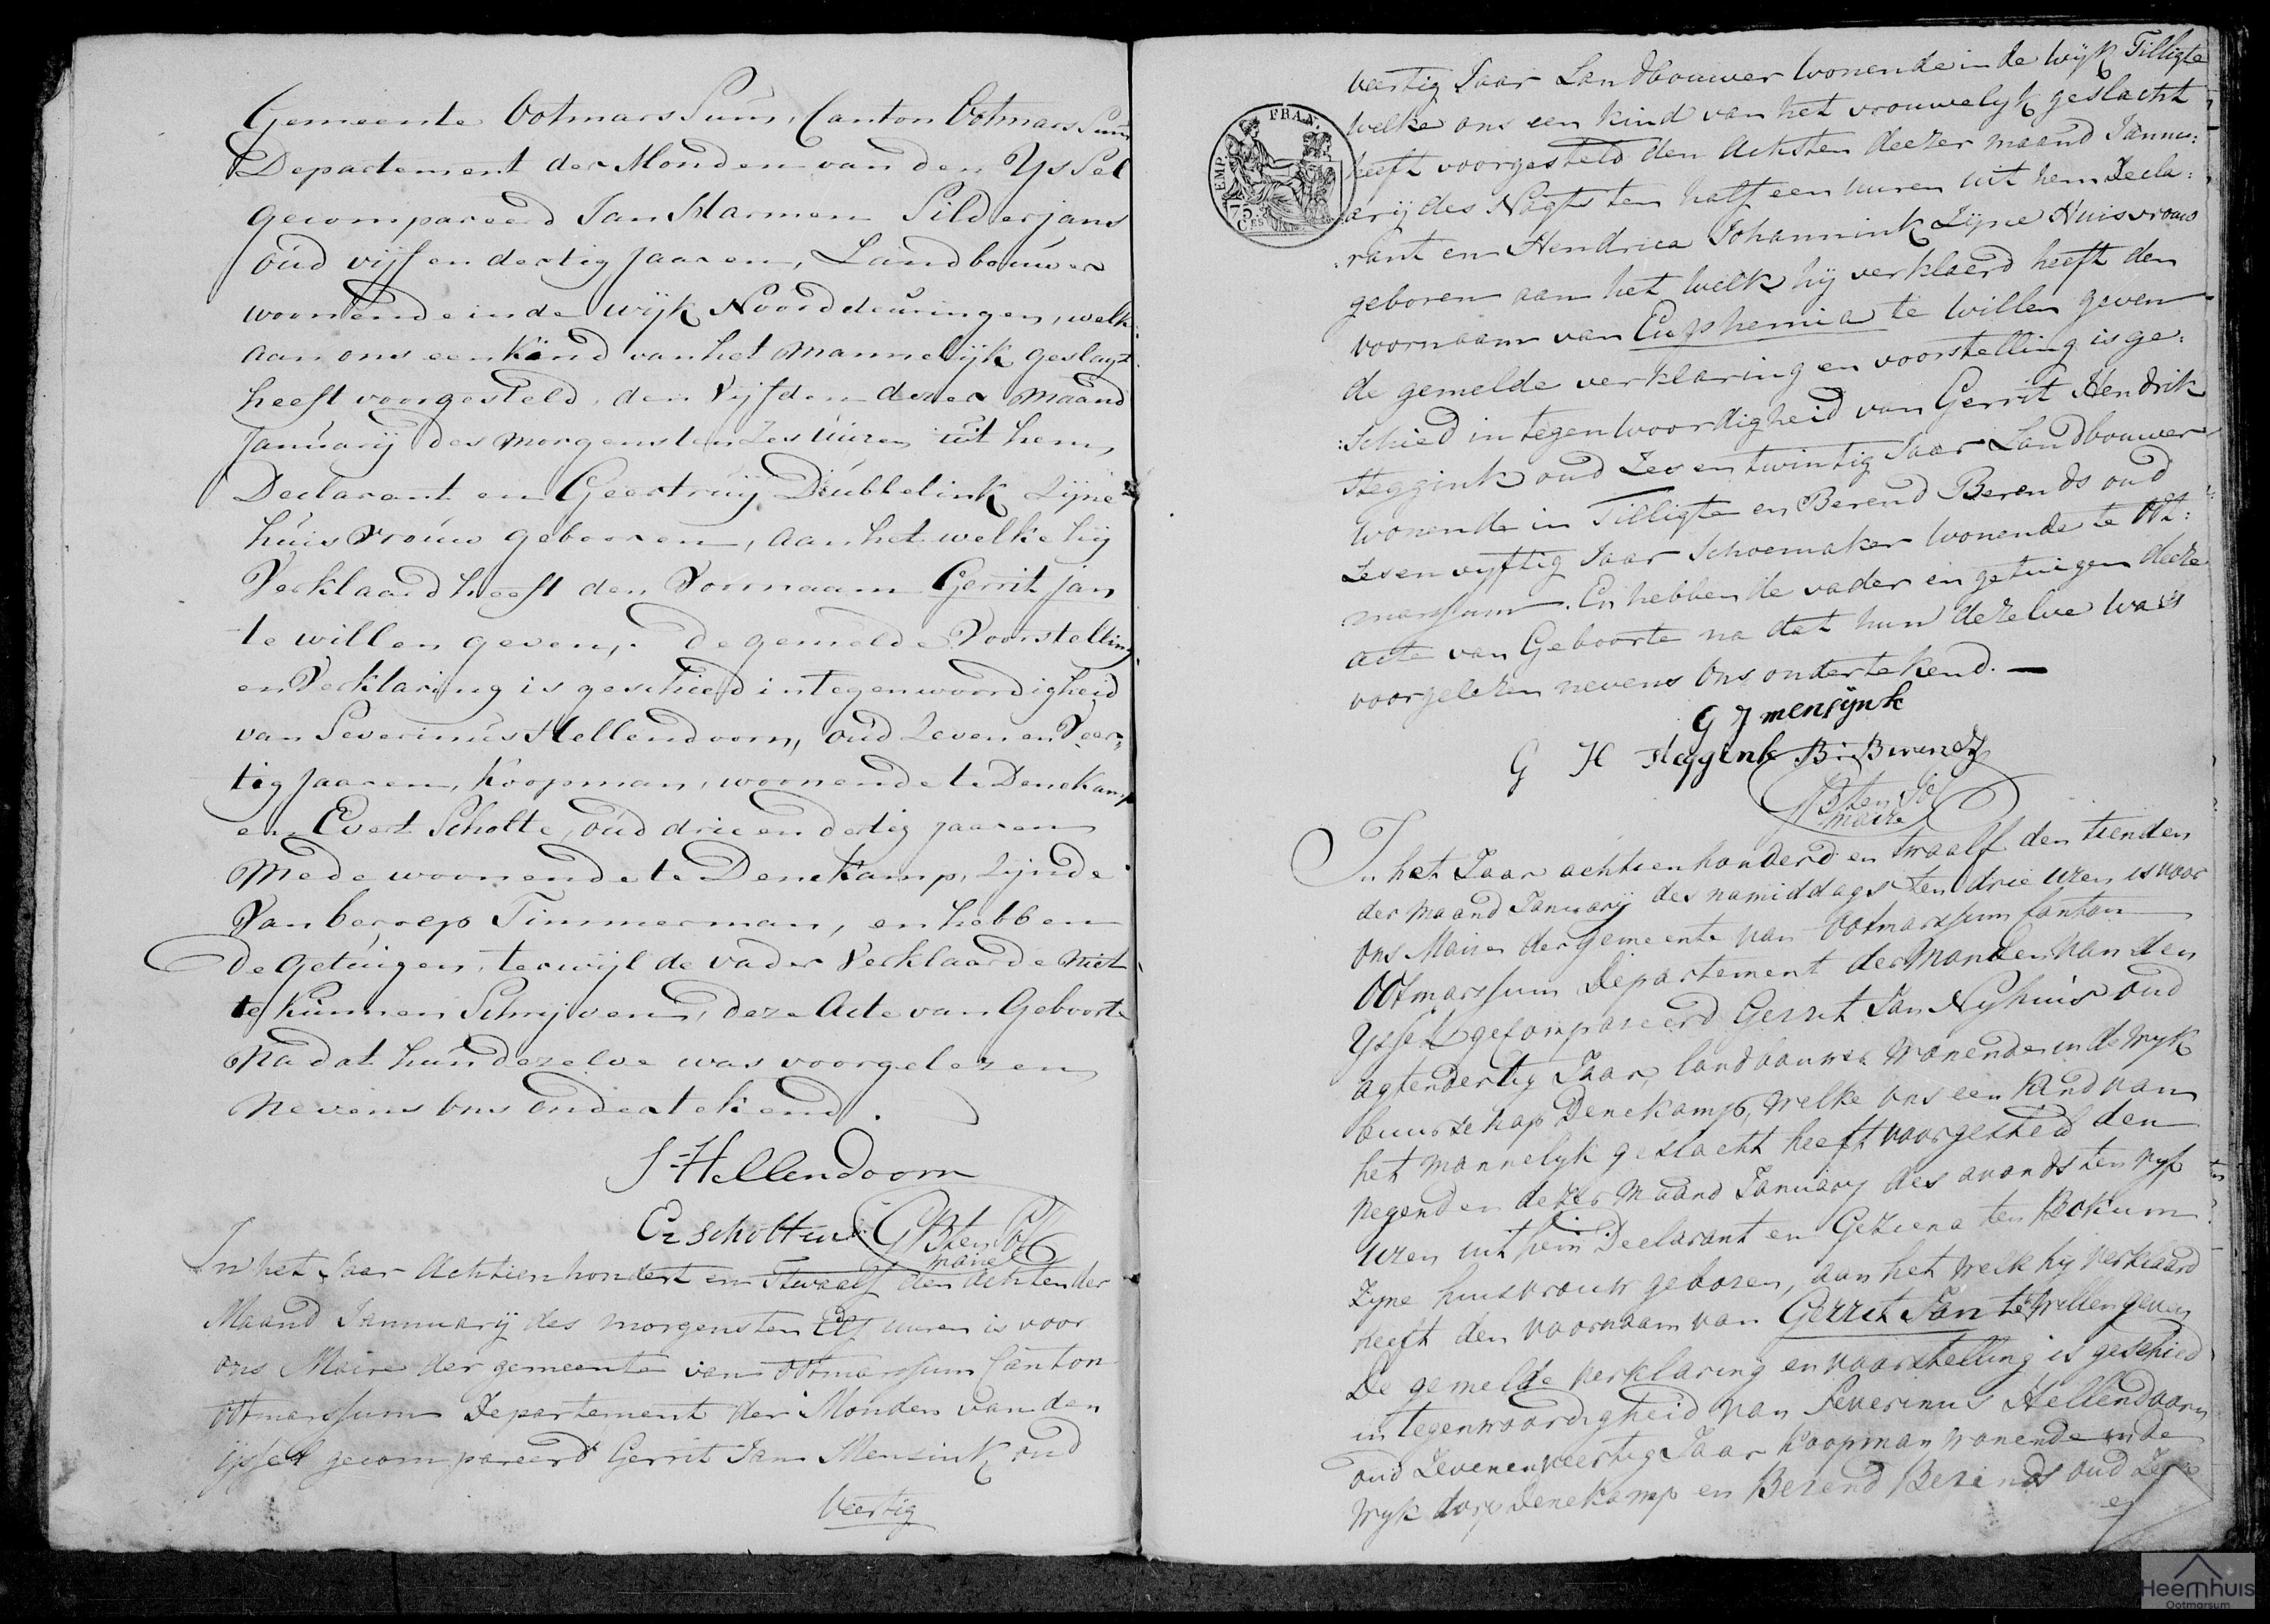 Gemeente OotmarsSum, Canton OotmarsSum
Departement der Monden van den YsSel
gecompareerd Jan Harmen Silderjans
oud vijf en dertig jaaren, Landbouwer
woonende in de wijk Noorddeuringen, welk
aan ons een Kind van het mannelijk geslagt
heeft voorgesteld, den Vijfden dezer maand
Januarij des morgens ten Zes üüren uit hem
Declarant en Geertruij Dubbelink Zijne
huisvrouw gebooren, aan het welke hij
Verklaard heeft den Voornaam Gerrit jan
te willen geven, de gemelde Voorstelling
en Verklaring is geschied in tegenwoordigheid
van Severinus Hellendoorn, oud Zeven en Veer„
tig jaaren, Koopman, woonende te Denekamp
en Evert Scholte, oud drie en dertig jaaren
Mede woonende te Denekamp, Zijnde
Van beroep Timmerman, en hebben
de getuigen, terwijl de vader Verklaarde niet
te Kunnen Schrijven, deze Acte van Geboorte
Na dat hun dezelve was voorgelezen
Nevens ons ondertekend.
S Hellendoorn
Ev scholten GB ten Pol
maire
In het Jaar Achtienhondert en Twaalf den Achten der
Maand Jannuarij des morgens ten Elf uuren is voor
ons Maire der gemeente van ootmarssum Canton
ootmarssum Departement der Monden van den
ijssel gecompareerd Gerrit Jan Mensink oud
veertig
veertig Jaar Landbouwer wonende in de wijk Tilligte
welke ons een kind van het vrouwelijk geslacht
heeft voorgesteld den Achsten deezer maand Jannu:
EMP. FRAN.
75
CES
arij des Nagts ten half een uuren uit hem Decla:
:rant en Hendrica Johannink Zijne Huisvrouw
geboren aan het welk hij verklaerd heeft den
voornaam van Euphemia te willen geven
de gemelde verklaring en voorstelling is ge:
:schied in tegenwoordigheid van Gerrit Hendrik
Steggink oud Zes en twintig Jaar Landbouwer
wonende in Tilligte en Berend Berends oud
Zes en vyftig Jaar Schoemaker wonende te Oot:
marssum. En hebben de vader en getuigen deeze
acte van Geboorte na dat hun dezelve was
voorgelezen nevens Ons ondertekend. —
G J mensijnk
G H Steggink B: Berends
GB ten Pol
maire
In het Jaar achtienhonderd en twaalf den tienden
der maand Januarij des namiddags ten drie uren is voor
ons Maire der gemeente van Ootmarssum Canton
Ootmarssum Departement der Monden van den
Yssel gecompareerd Gerrit Jan Nyhuis oud
agtendertig Jaar, landbouwer wonende in de wyk
buurschap Denekamp, welke ons een kind van
het mannelyk geslacht heeft voorgesteld den
negenden dezer maand January des avonds ten vyf
uren uit hem Declarant en Geziena ten Bockum
Zyne huisvrouw geboren, aan het welk hij verklaard
heeft den voornaam van Gerrit Jan te willen geven
De gemelde verklaring en voorstelling is geschied
in tegenwoordigheid van Severinus Hellendoorn
oud Zevenenveertig Jaar Koopman wonende in de
wyk dorp Denekamp en Berend Berends oud Zes
en
Heemhuis
Ootmarsum